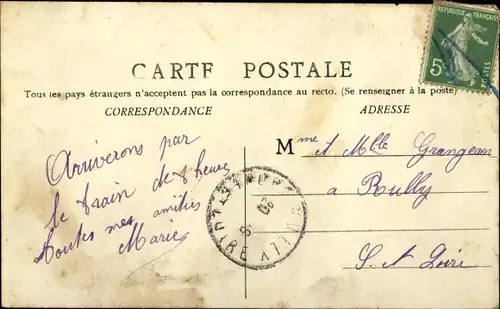 RÉPUBLIQUE FRANÇAISE
5c
POSTES
CARTE POSTALE
Tous les pays étrangers n'acceptent pas la correspondance au recto. (Se renseigner à la poste)
CORRESPONDANCE
ADRESSE
Arriverons par
le train de 8 heures
toutes mes amitiés
Marie
Mme et Mlle Grangean
a Rully
S. et Loire